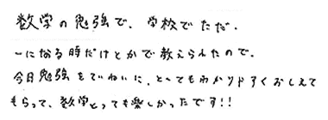 数学の勉強で、学校でただ、
一になる時だけとかで教えられたので、
今日勉強をていねいに、とってもわかりやすくおしえて
もらって、数学とっても楽しかったです!!